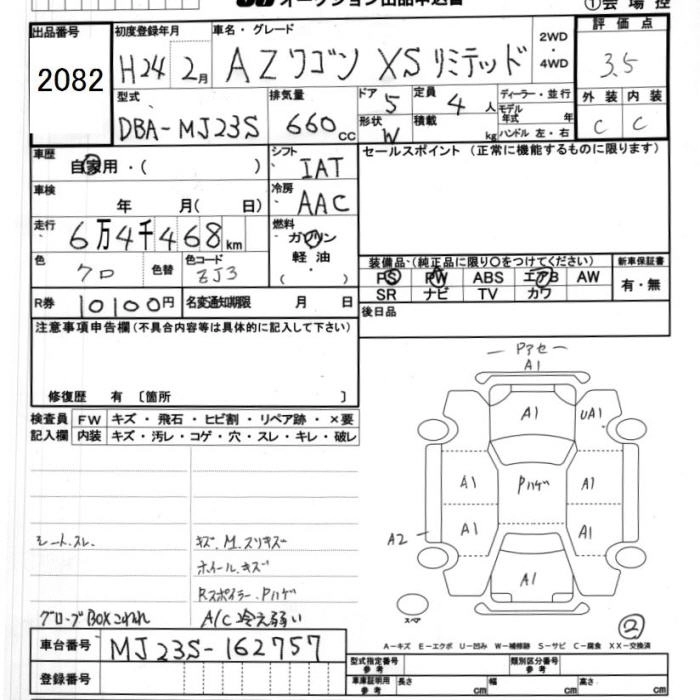 オークション出品申込書 ①会場控
出品番号 初度登録年月 車名・グレード 2WD・4WD 評価点
2082 H24 2月 AZワゴン XSリミテッド 3.5
型式 排気量 ドア 5 定員 4人 ディーラー・並行 外装 内装
DBA-MJ23S 660cc 形状 W 積載 kg モデル年式 年式 ハンドル 左・右 C C
車歴 自家用・( ) シフト IAT セールスポイント (正常に機能するものに限ります)
車検 年 月( 日) 冷房 AAC
走行 6万4千468km 燃料 ガソリン
色 クロ 色替 色コード ZJ3 軽油 ( ・ ) 装備品・(純正品に限り○をつけてください) 新車保証書
PS PW ABS エアB AW 有・無
R券 10100円 名変通知期限 月 日 SR ナビ TV カワ
後日品
注意事項申告欄(不具合内容等は具体的に記入して下さい)
修復歴 有 〔箇所 〕
検査員記入欄 FW キズ・飛石・ヒビ割・リペア跡・×要
内装 キズ・汚レ・コゲ・穴・スレ・キレ・破レ
Pアセ
A1
A1 UA1
A1 Pハゲ A1
A2 A1 A1
A1
スペア ②
シートスレ キズ.M.スリキズ
ホイールキズ
Rスポイラー.Pハゲ
グローブBOXこわれ A/C冷え弱い
A-キズ E-エクボ U-凹み W-補修跡 S-サビ C-腐食 XX-交換済
車台番号 MJ23S-162757
型式指定番号 参考 類別区分番号 参考
登録番号 車庫証明用 参考 長さ cm 幅 cm 高さ cm